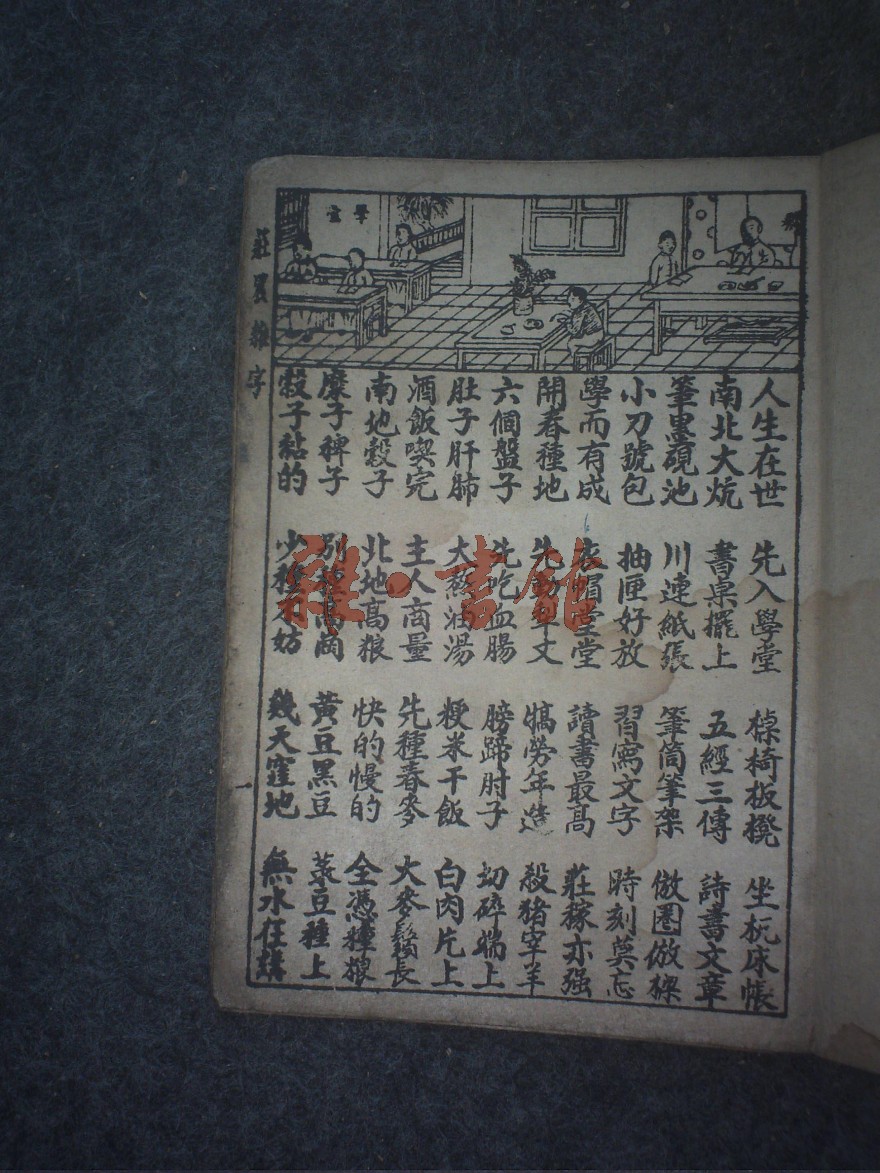 莊農雜字
學堂
人生在世 先入學堂 槕椅板櫈 坐杌床帳
南北大炕 書桌擺上 五經三傳 詩書文章
筆墨硯池 川連紙張 筆筒筆架 倣圈倣樑
小刀號包 抽匣好放 習寫文字 時刻莫忘
學而有成 衣帽堂堂 讀書最高 莊稼亦强
開春種地 先動 丈 犒勞年造 殺猪宰羊
六個盤子 先吃血腸 膀蹄肘子 切碎端上
肚子肝肺 大蘇油湯 粳米干飯 白肉片上
酒飯喫完 主人商量 先種春麥 大麥鬚長
南地穀子 北地高粮 快的慢的 全憑種粮
糜子稗子 別種高崗 黃豆黑豆 菉豆種上
穀子粘的 少種不妨 幾天窪地 無水在
雜·書館